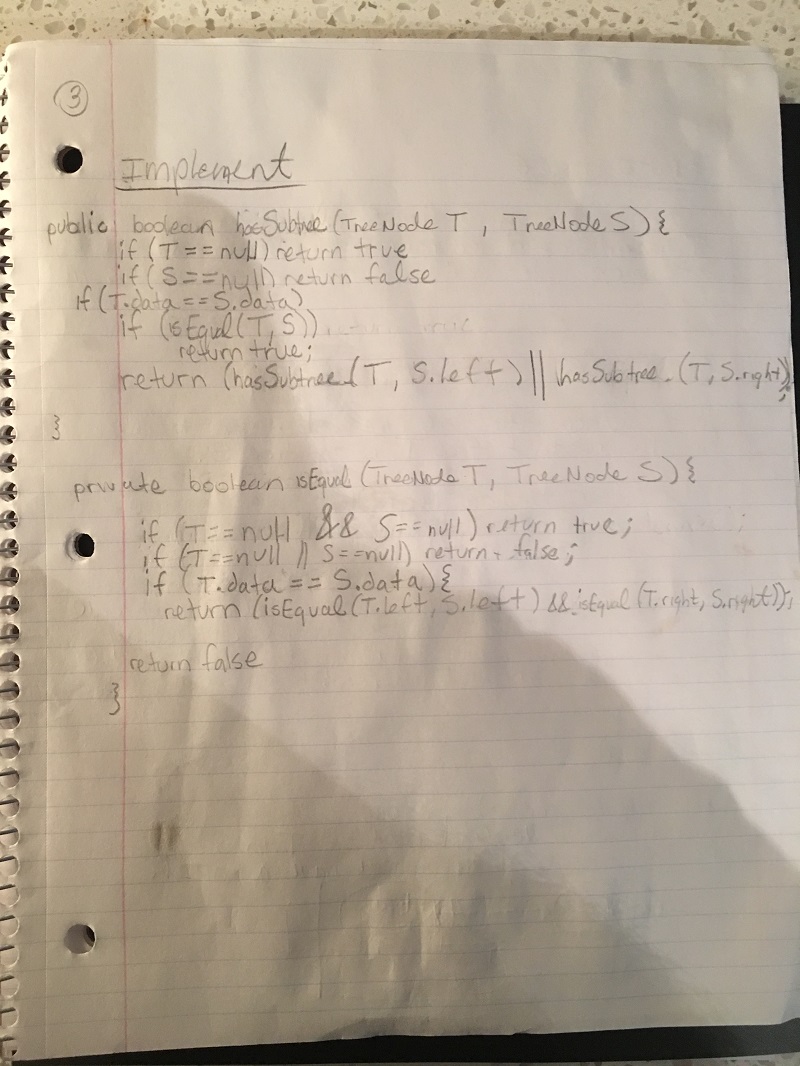 3
Implement
public boolean hasSubtree (TreeNode T , TreeNode S) {
if (T == null) return true
if (S == null) return false
if (T.data == S.data)
if (isEqual(T, S))
return true;
return (hasSubtree(T, S.left) || hasSubtree.(T, S.right);
}
private boolean isEqual (TreeNode T, TreeNode S) {
if (T == null && S == null) return true;
if (T == null || S == null) return false;
if (T.data == S.data) {
return (isEqual(T.left, S.left) && isEqual(T.right, S.right));
return false
}